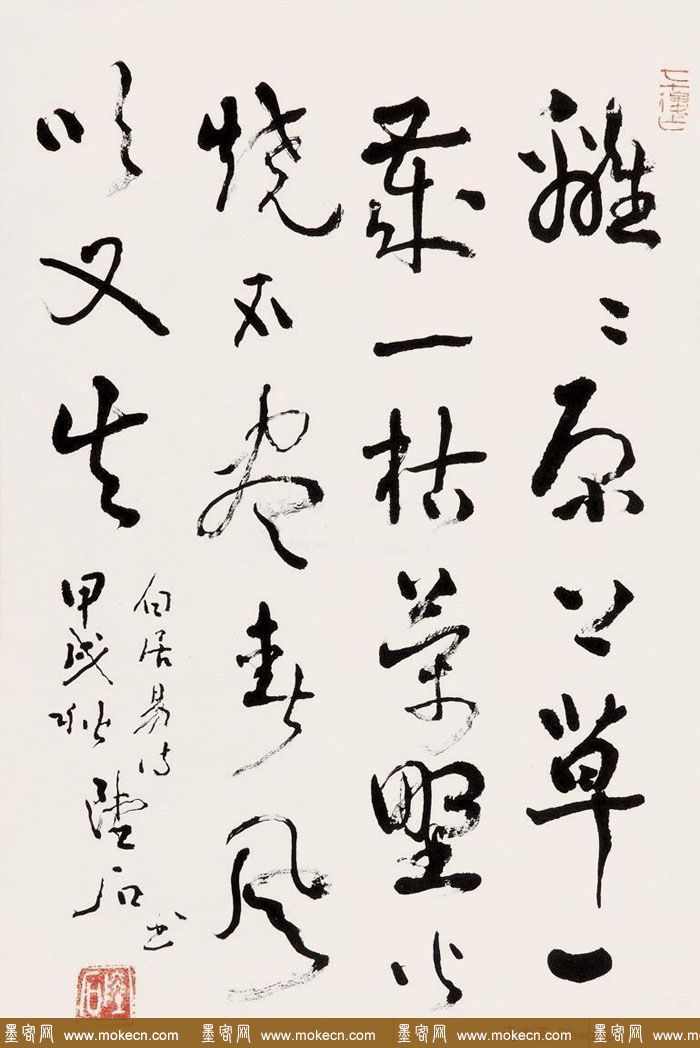 離〻原上草一
歲一枯榮野火
燒不盡春風
吹又生
白居易诗
甲戌秋 石书
墨客网 www.mokecn.com 墨客网 www.mokecn.com 墨客网 www.mokecn.com 墨客网 www.mo